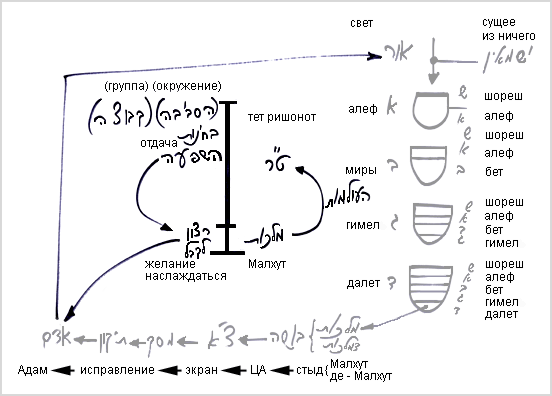 свет
сущее
из ничего
אור
יש מאין
(группа) (окружение)
(הסביבה) (קבוצה)
отдача
בחינות
השפעה
тет ришонот
ט"ר
העולמות
הרצון
לקבל
מלכות
желание
наслаждаться
Малхут
алеф א
ש шореш
א алеф
миры ב
ש шореш
א алеф
ב бет
гимел ג
ש шореш
א алеф
ב бет
ג гимел
далет ד
ש шореш
א алеф
ב бет
ג гимел
ד далет
מלכות
דמלכות
{ בושה ← צ"א ← מסך ← תיקון ← אדם
Адам ← исправление ← экран ← ЦА ← стыд {
Малхут
де - Малхут